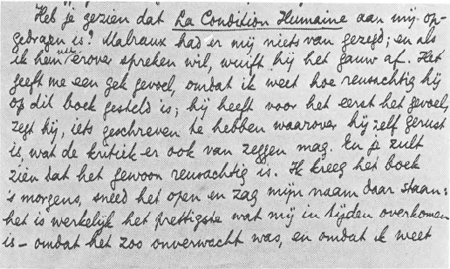 Heb je gezien dat La Condition Humaine aan mij op-
gedragen is? Malraux had er mij niets van gezegd; en als
ik hem erover spreken wil, wuift hij het gauw af. Het
geeft me een gek gevoel, omdat ik weet hoe reusachtig hij
op dit boek gesteld is; hij heeft voor het eerst het gevoel,
zegt hij, iets geschreven te hebben waarover hij zelf gerust
is, wat de kritiek er ook van zeggen mag. En je zult
zien dat het gewoon reusachtig is. Ik kreeg het boek
's morgens, sneed het open en zag mijn naam daar staan:
het is werkelijk het prettigste wat mij in tijden overkomen
is – omdat het zoo onverwacht was, en omdat ik weet